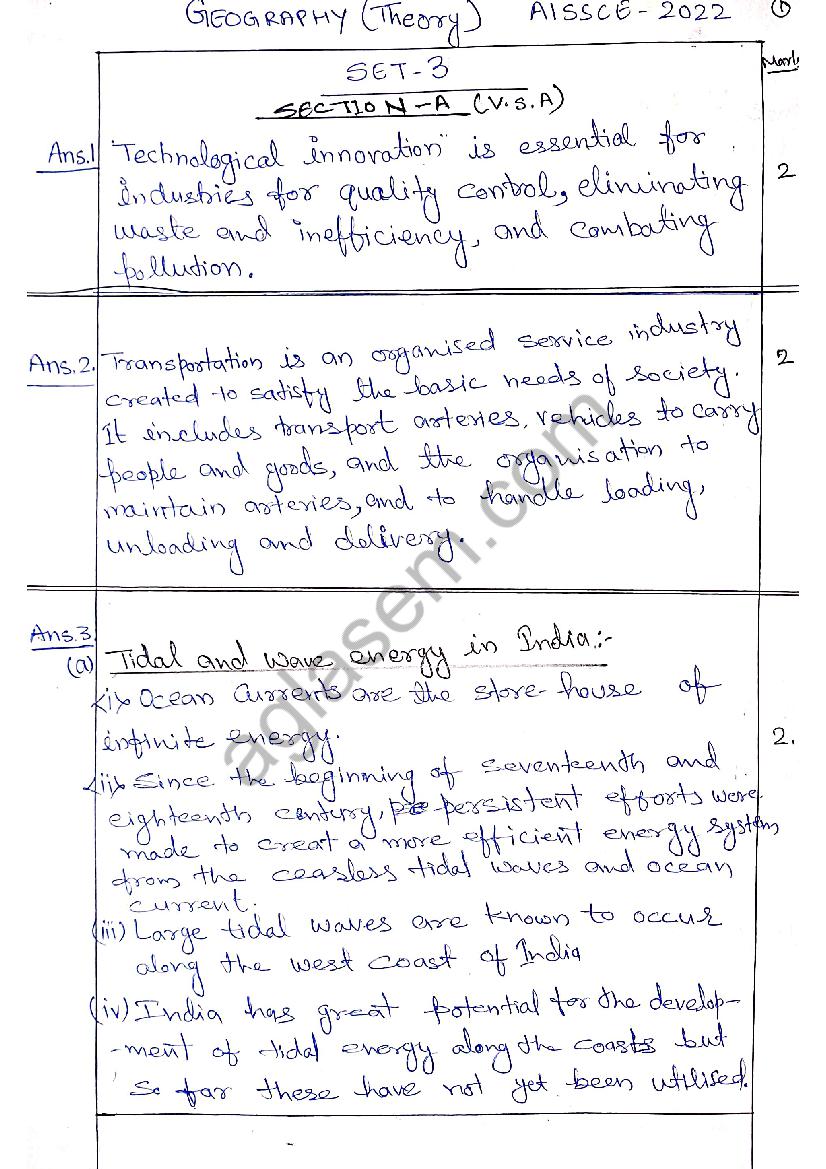 GEOGRAPHY (Theory) AISSCE - 2022 1
Mark
SET-3
SECTION-A (V.S.A)
Ans.1 "Technological innovation" is essential for
industries for quality control, eliminating
waste and inefficiency, and combating
pollution.
2
Ans.2. Transportation is an organised service industry
created to satisfy the basic needs of society.
It includes transport arteries, vehicles to carry
people and goods, and the organisation to
maintain arteries, and to handle loading,
unloading and delivery.
2
Ans.3
(a) Tidal and wave energy in India:-
<i> Ocean currents are the store-house of
infinite energy.
<ii> Since the beginning of seventeenth and
eighteenth century, persistent efforts were
made to creat a more efficient energy system
from the ceasless tidal waves and ocean
current.
(iii) Large tidal waves are known to occur
along the west coast of India
(iv) India has great potential for the develop-
-ment of tidal energy along the coasts but
so far these have not yet been utilised.
2.
aglasem.com